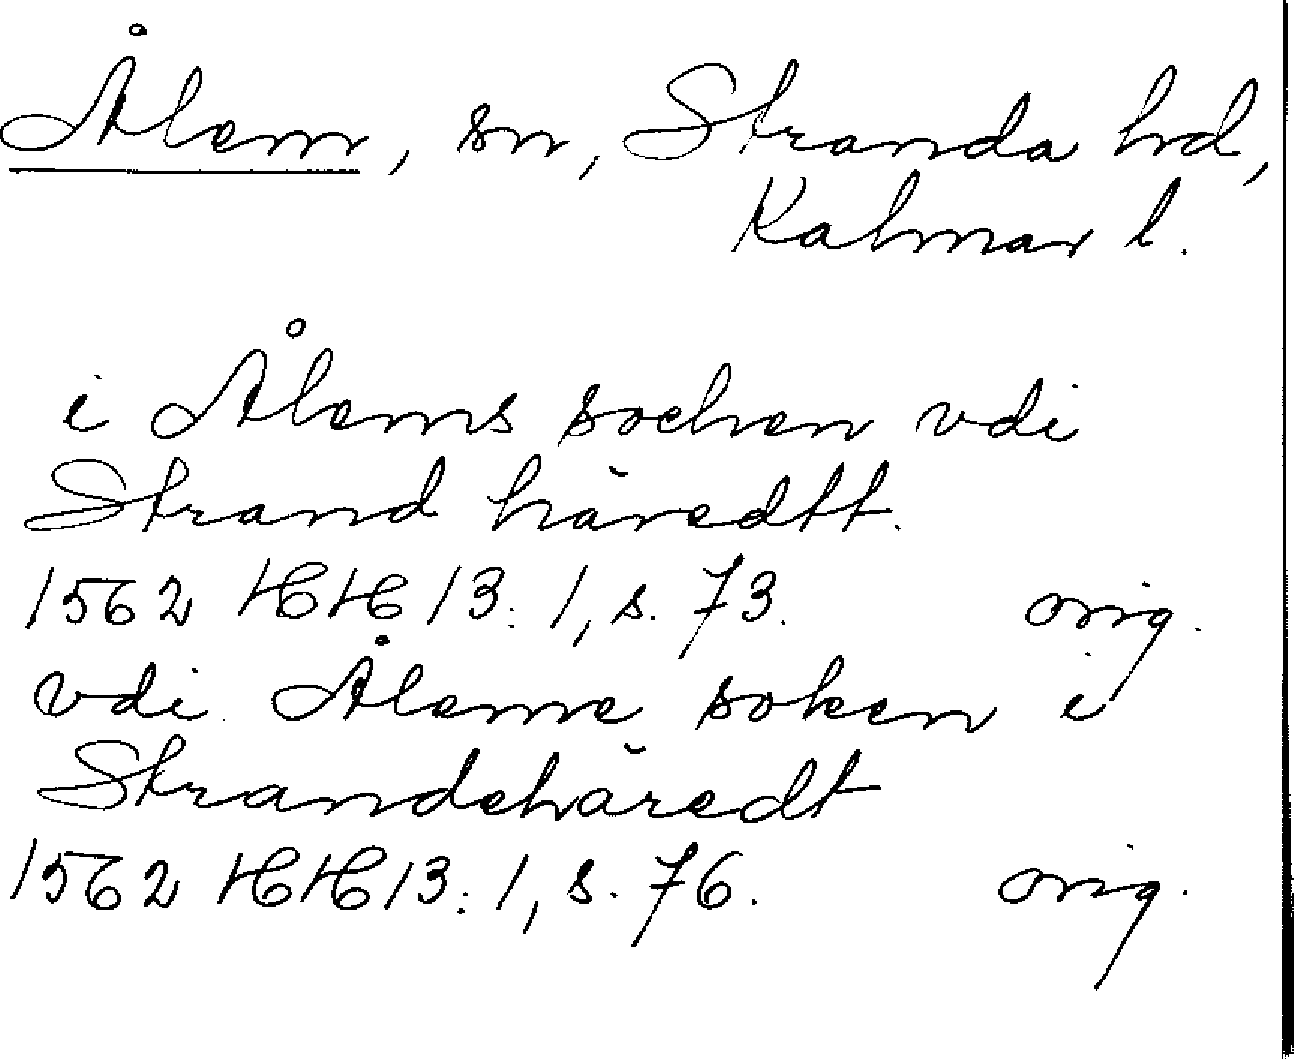 Ålem, sn, Stranda hd,
Kalmar l.
i Ålems sochen vdi
Strand häredtt.
1562 HH 13: 1, s. 73. orig.
vdi Åleme soken i
Strandehäredt
1562 HH 13: 1, s. 76. orig.